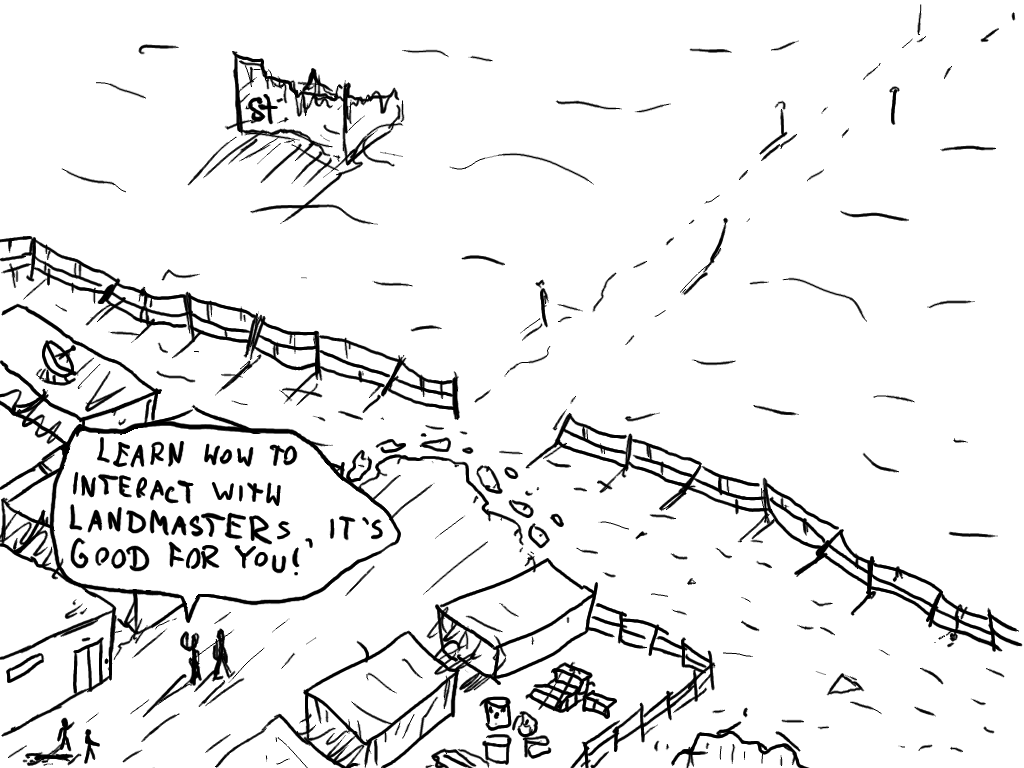 St
LEARN WOW TO
INTERACT WITH
LANDMASTERS, IT'S
GOOD FOR YOU!